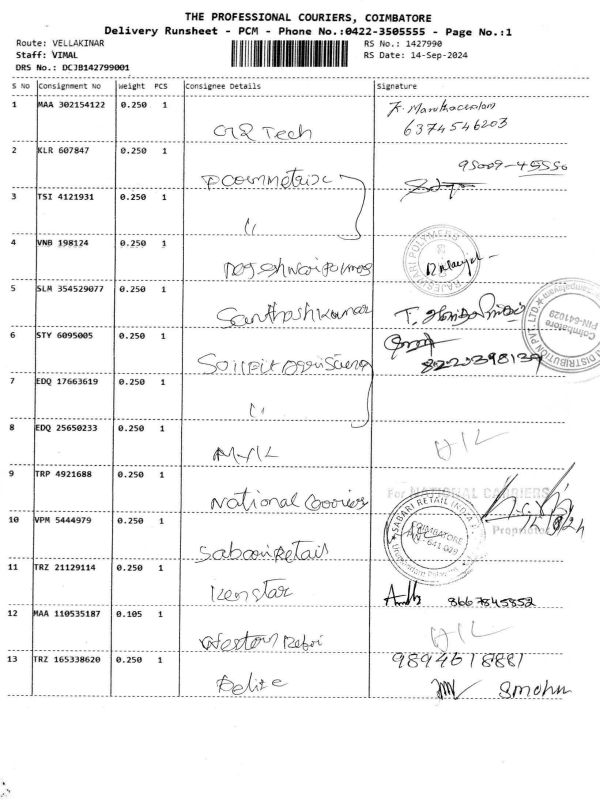 THE PROFESSIONAL COURIERS, COIMBATORE
Delivery Runsheet - PCM - Phone No.:0422-3505555 - Page No.:1
Route: VELLAKINAR RS No.: 1427990
Staff: VIMAL RS Date: 14-Sep-2024
DRS No.: DCJB142799001
S No Consignment No Weight PCS Consignee Details Signature
1 MAA 302154122 0.250 1
Tech 6374546203
2 KLR 607847 0.250 1
95009-45550
3 TSI 4121931 0.250 1
"
4 VNB 198124 0.250 1
RAJESHWARI POLYMERS
5 SLM 354529077 0.250 1
Santhoshkumar
DISTRIBUTION PVT. LTD.
Coimbatore
PIN-641029
6 STY 6095005 0.250 1
8220398139
7 EDQ 17663619 0.250 1
"
8 EDQ 25650233 0.250 1
9 TRP 4921688 0.250 1
National Couriers
For NATIONAL CARRIERS
Proprietor
10 VPM 5444979 0.250 1
Sabari Retail
SABARI RETAIL INDIA
COIMBATORE
641 029
11 TRZ 21129114 0.250 1
Kenstar
8667845852
12 MAA 110535187 0.105 1
Western
13 TRZ 165338620 0.250 1
9894618881
Belize
Smohn